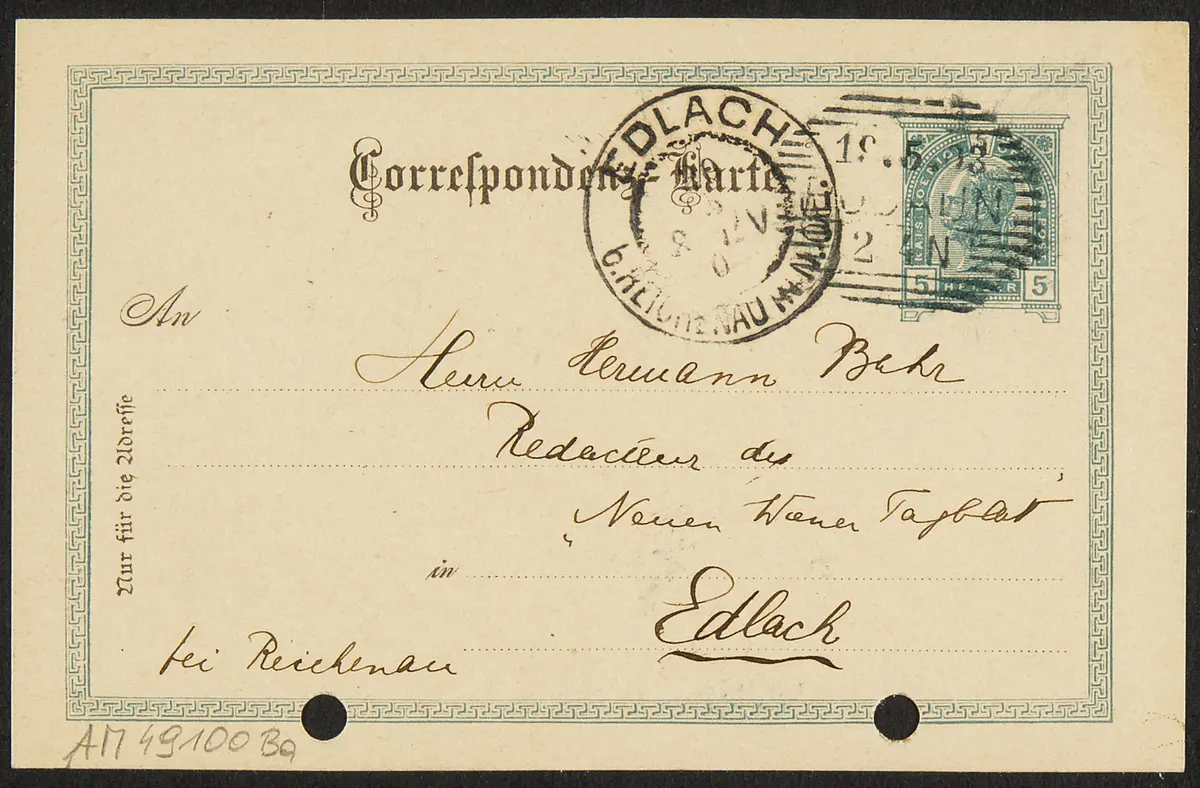 Correspondenz-Karte
EDLACH
b. REICHENAU IN N.OE.
KAIS
5 HELLER 5
An
Herrn Hermann Bahr
Redacteur des
„Neuen Wiener Tagblatt‘
in
Edlach
bei Reichenau
Nur für die Adresse
AM 49100 Ba